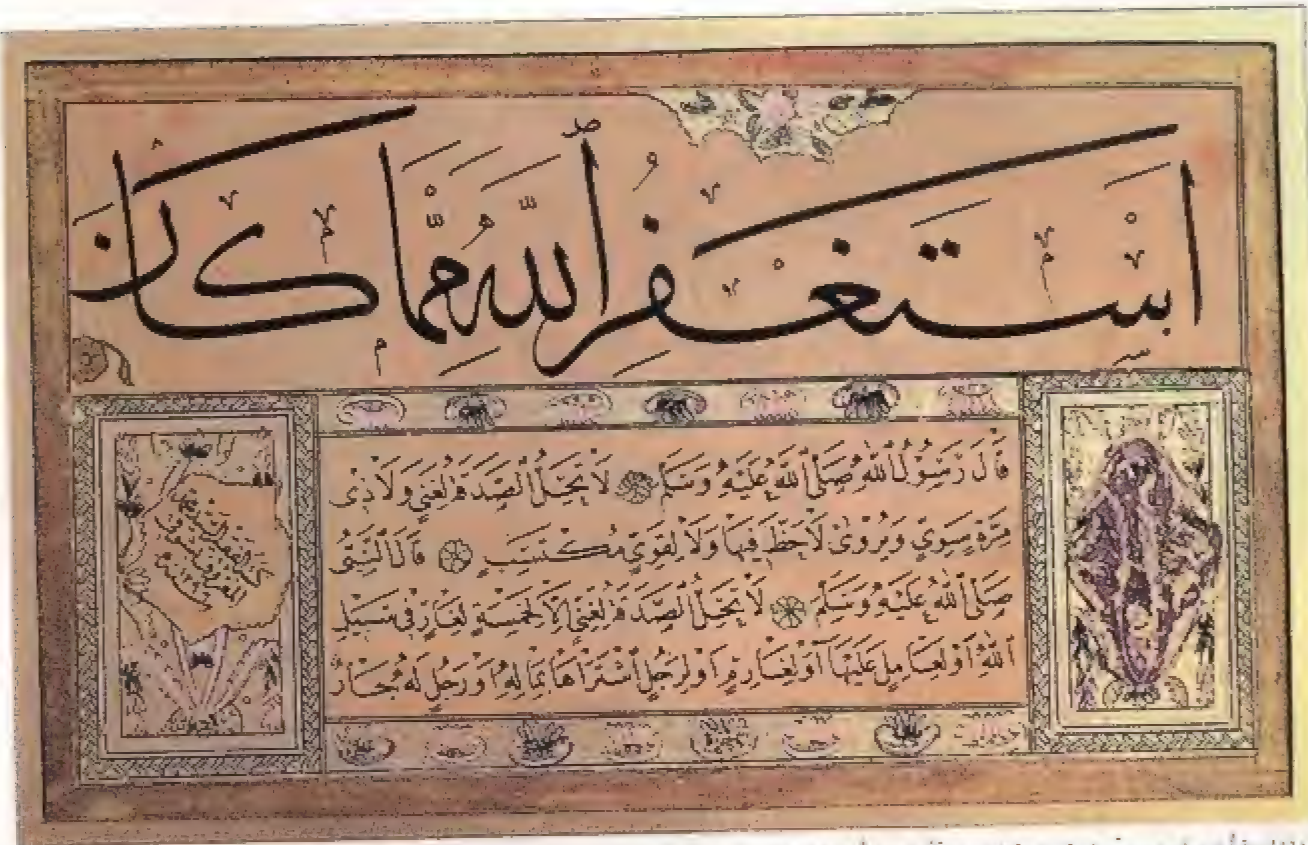 استغفر الله مما كان
قَالَ رَسُولُ اللهِ صَلَّى اللهُ عَلَيْهِ وَسَلَّمَ لَا تَحِلُّ الصَّدَقَةُ لِغَنِيٍّ وَلَا ذِى
مِرَّةٍ سَوِيٍّ وَيُرْوٰى لَاحَظَّ فِيهَا وَلَا لِقَوِيٍّ مُكْتَسِبٍ قَالَ النَّبِىُّ
صَلَّى اللهُ عَلَيْهِ وَسَلَّمَ لَا تَحِلُّ الصَّدَقَةُ لِغَنِىٍّ اِلَّا لِخَمْسَةٍ لِغَازٍ فِى سَبِيلِ
اللهِ اَوْ لِعَامِلٍ عَلَيْهَا اَوْ لِغَارِمٍ اَوْ لِرَجُلٍ اشْتَرَاهَا بِمَالِهِ اَوْ رَجُلٍ لَهُ جَارٌ